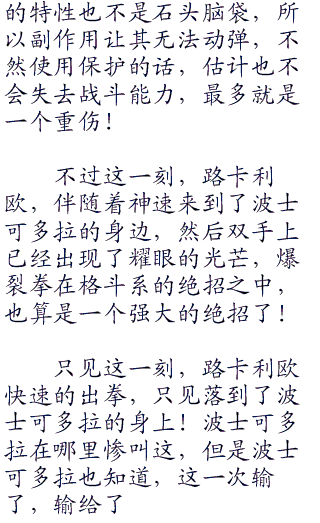 的特性也不是石头脑袋，所
以副作用让其无法动弹，不
然使用保护的话，估计也不
会失去战斗能力，最多就是
一个重伤！
不过这一刻，路卡利
欧，伴随着神速来到了波士
可多拉的身边，然后双手上
已经出现了耀眼的光芒，爆
裂拳在格斗系的绝招之中，
也算是一个强大的绝招了！
只见这一刻，路卡利欧
快速的出拳，只见落到了波
士可多拉的身上！波士可多
拉在哪里惨叫这，但是波士
可多拉也知道，这一次输
了，输给了